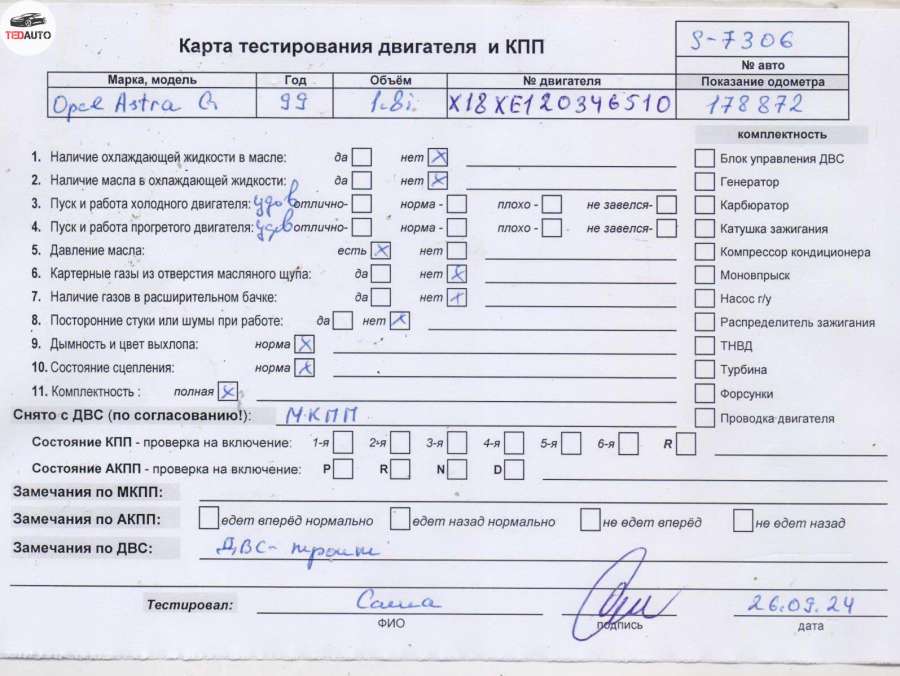 TEDAUTO
Карта тестирования двигателя и КПП
S-7306
№ авто
Марка, модель Год Объём № двигателя Показание одометра
Opel Astra G 99 1.8i X18XE120346510 178872
комплектность
1. Наличие охлаждающей жидкости в масле: да нет Блок управления ДВС
2. Наличие масла в охлаждающей жидкости: да нет Генератор
3. Пуск и работа холодного двигателя: удов отлично- норма - плохо - не завелся- Карбюратор
4. Пуск и работа прогретого двигателя: удов отлично- норма - плохо - не завелся- Катушка зажигания
5. Давление масла: есть нет Компрессор кондиционера
6. Картерные газы из отверстия масляного щупа: да нет Моновпрыск
7. Наличие газов в расширительном бачке: да нет Насос г/у
8. Посторонние стуки или шумы при работе: да нет Распределитель зажигания
9. Дымность и цвет выхлопа: норма ТНВД
10. Состояние сцепления: норма Турбина
11. Комплектность : полная Форсунки
Снято с ДВС (по согласованию!): МКПП Проводка двигателя
Состояние КПП - проверка на включение: 1-я 2-я 3-я 4-я 5-я 6-я R
Состояние АКПП - проверка на включение: P R N D
Замечания по МКПП:
Замечания по АКПП: едет вперёд нормально едет назад нормально не едет вперёд не едет назад
Замечания по ДВС: ДВС- троит
Тестировал: Саша 26.09.24
ФИО подпись дата